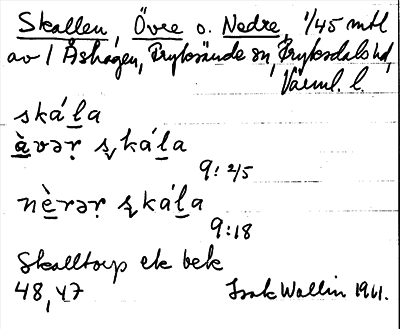 Skallen, Övre o. Nedre, 1/45 mtl
av 1 Åshagen, Fryksände sn, Fryksdals hd,
Värml. l.
skála
àvər skála
9: 2/5
nèrər skála
9:18
Skalltorp ek bek
48, 47 Isak Wallin 1961.